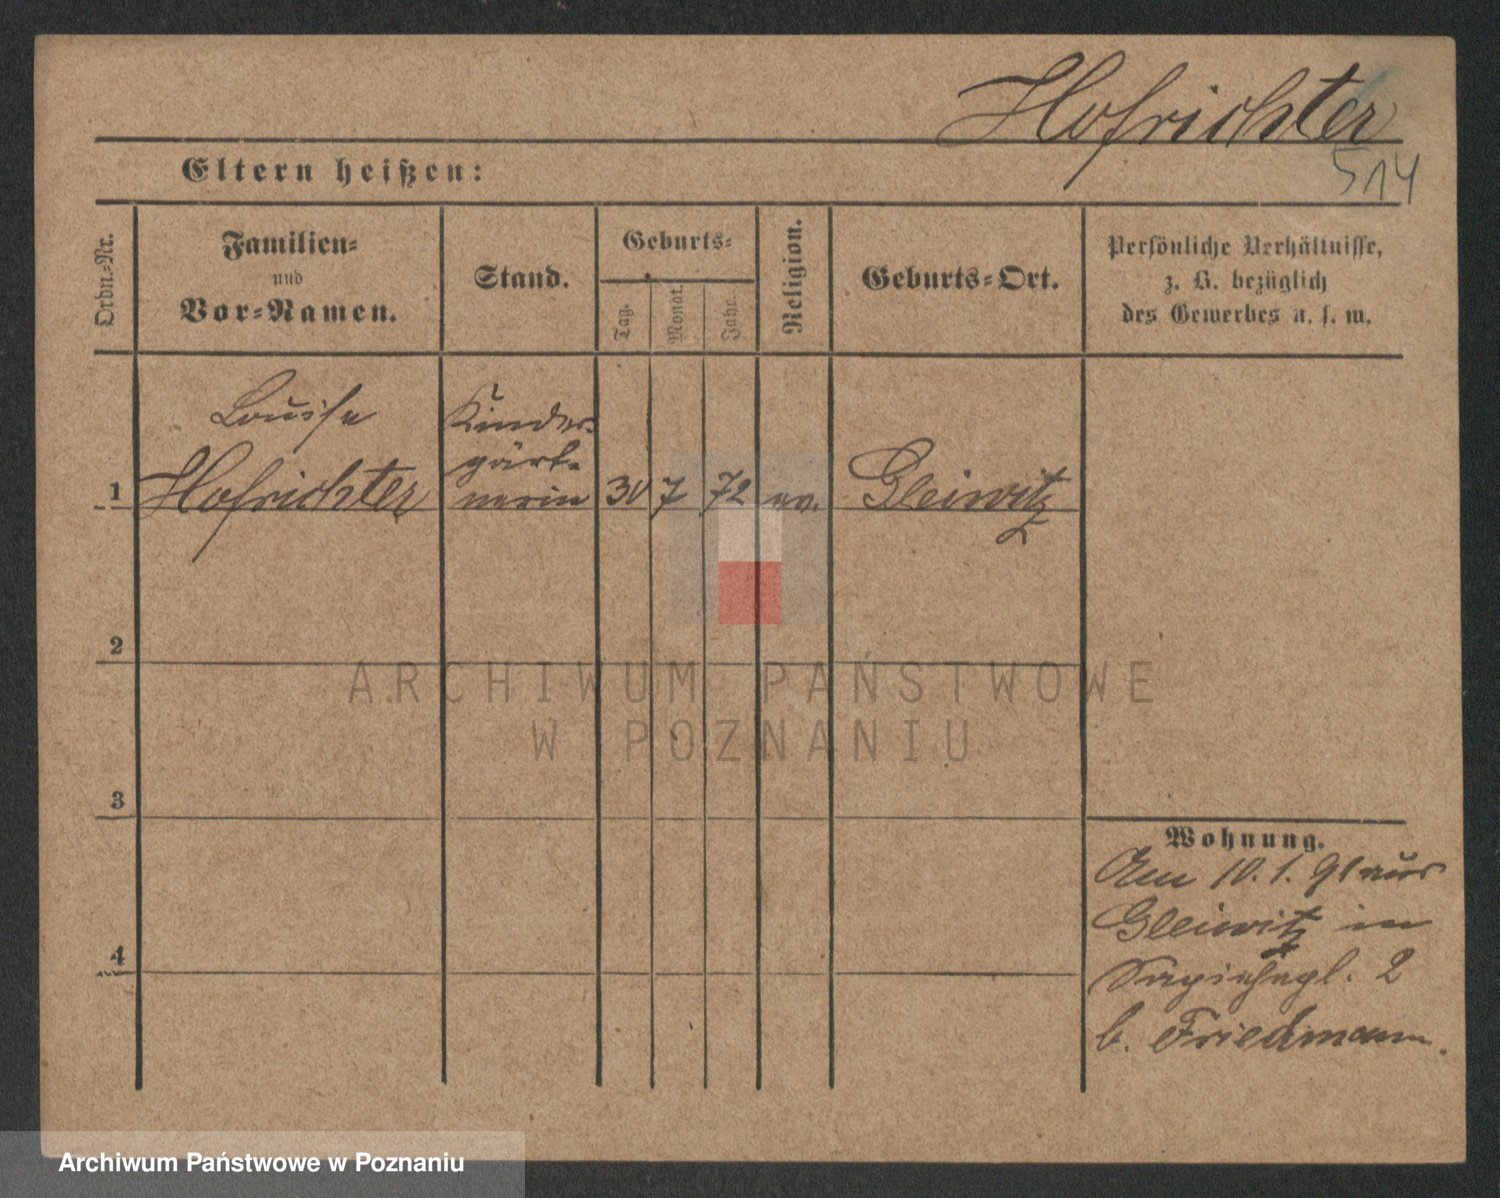 Hofrichter
514
Eltern heißen:
Ordn.-Nr.
Familien-
und
Vor-Namen.
Stand.
Geburts-
Tag.
Monat.
Jahr.
Religion.
Geburts-Ort.
Persönliche Verhältnisse,
z. B. bezüglich
des Gewerbes u. s. w.
1
Louise
Hofrichter
Kinder-
gärt-
nerin
30
7
72
ev.
Gleiwitz
2
3
4
Wohnung.
Am 10. 1. 91 aus
Gleiwitz in
Sapiehapl. 2
b. Friedmann.
ARCHIWUM PAŃSTWOWE
W POZNANIU
Archiwum Państwowe w Poznaniu